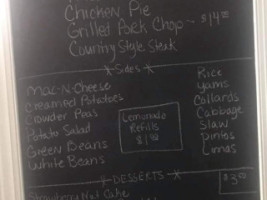 Chicken Pie
Grilled Pork Chop ~ $14.00
Country Style Steak
Sides
Mac-N-Cheese
Creamed Potatoes
Crowder Peas
Potato Salad
Green Beans
White Beans
Lemonade
Refills
$1.00
Rice
Yams
Collards
Cabbage
Slaw
Pintos
Limas
DESSERTS
$3.00
Strawberry Nut Cake